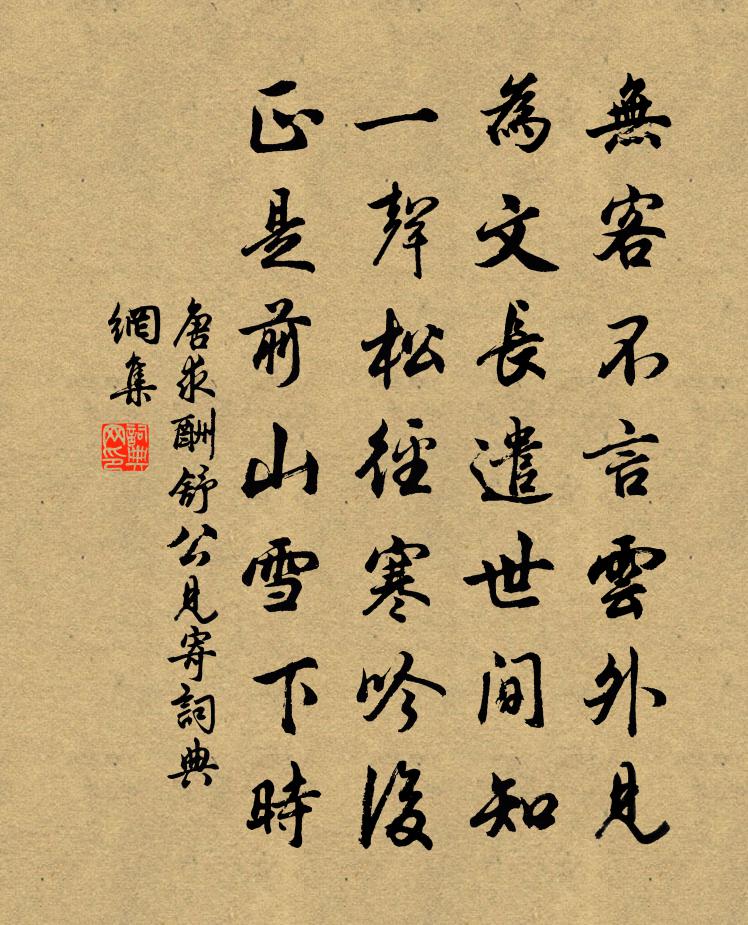 無客不言雲外見
為文長遣世間知
一聲松徑寒吟後
正是前山雪下時
唐求酬舒公見寄詞典
網集
詞典
网印